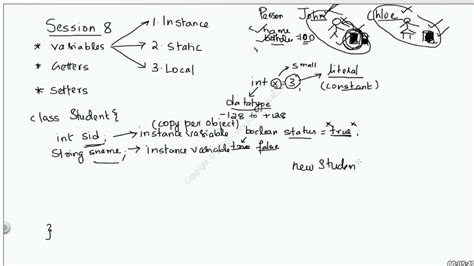 Session 8
* Variables
1. Instance
2. Static
3. Local
* Getters
* Setters
Person
name
John
Chloe
small
int x = 3;
literal
(constant)
datatype
-128 to +128
class Student{
(copy per object)
int sid; → instance variable
boolean status = true;
String sname; → instance variable
true false
new Studen
}